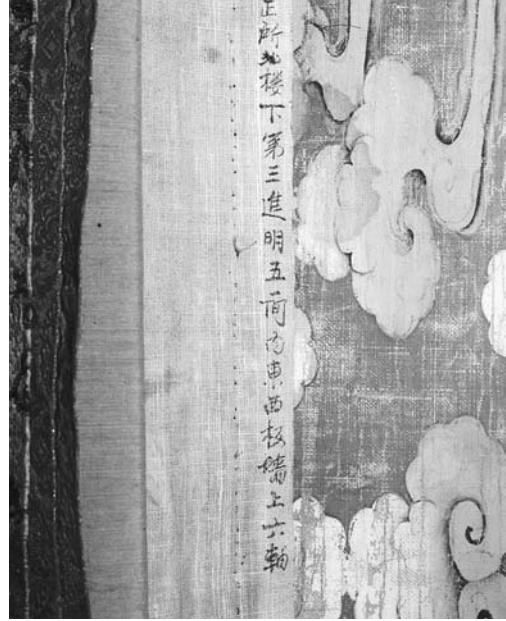 正所北楼下第三進明五间内東西板墻上六軸